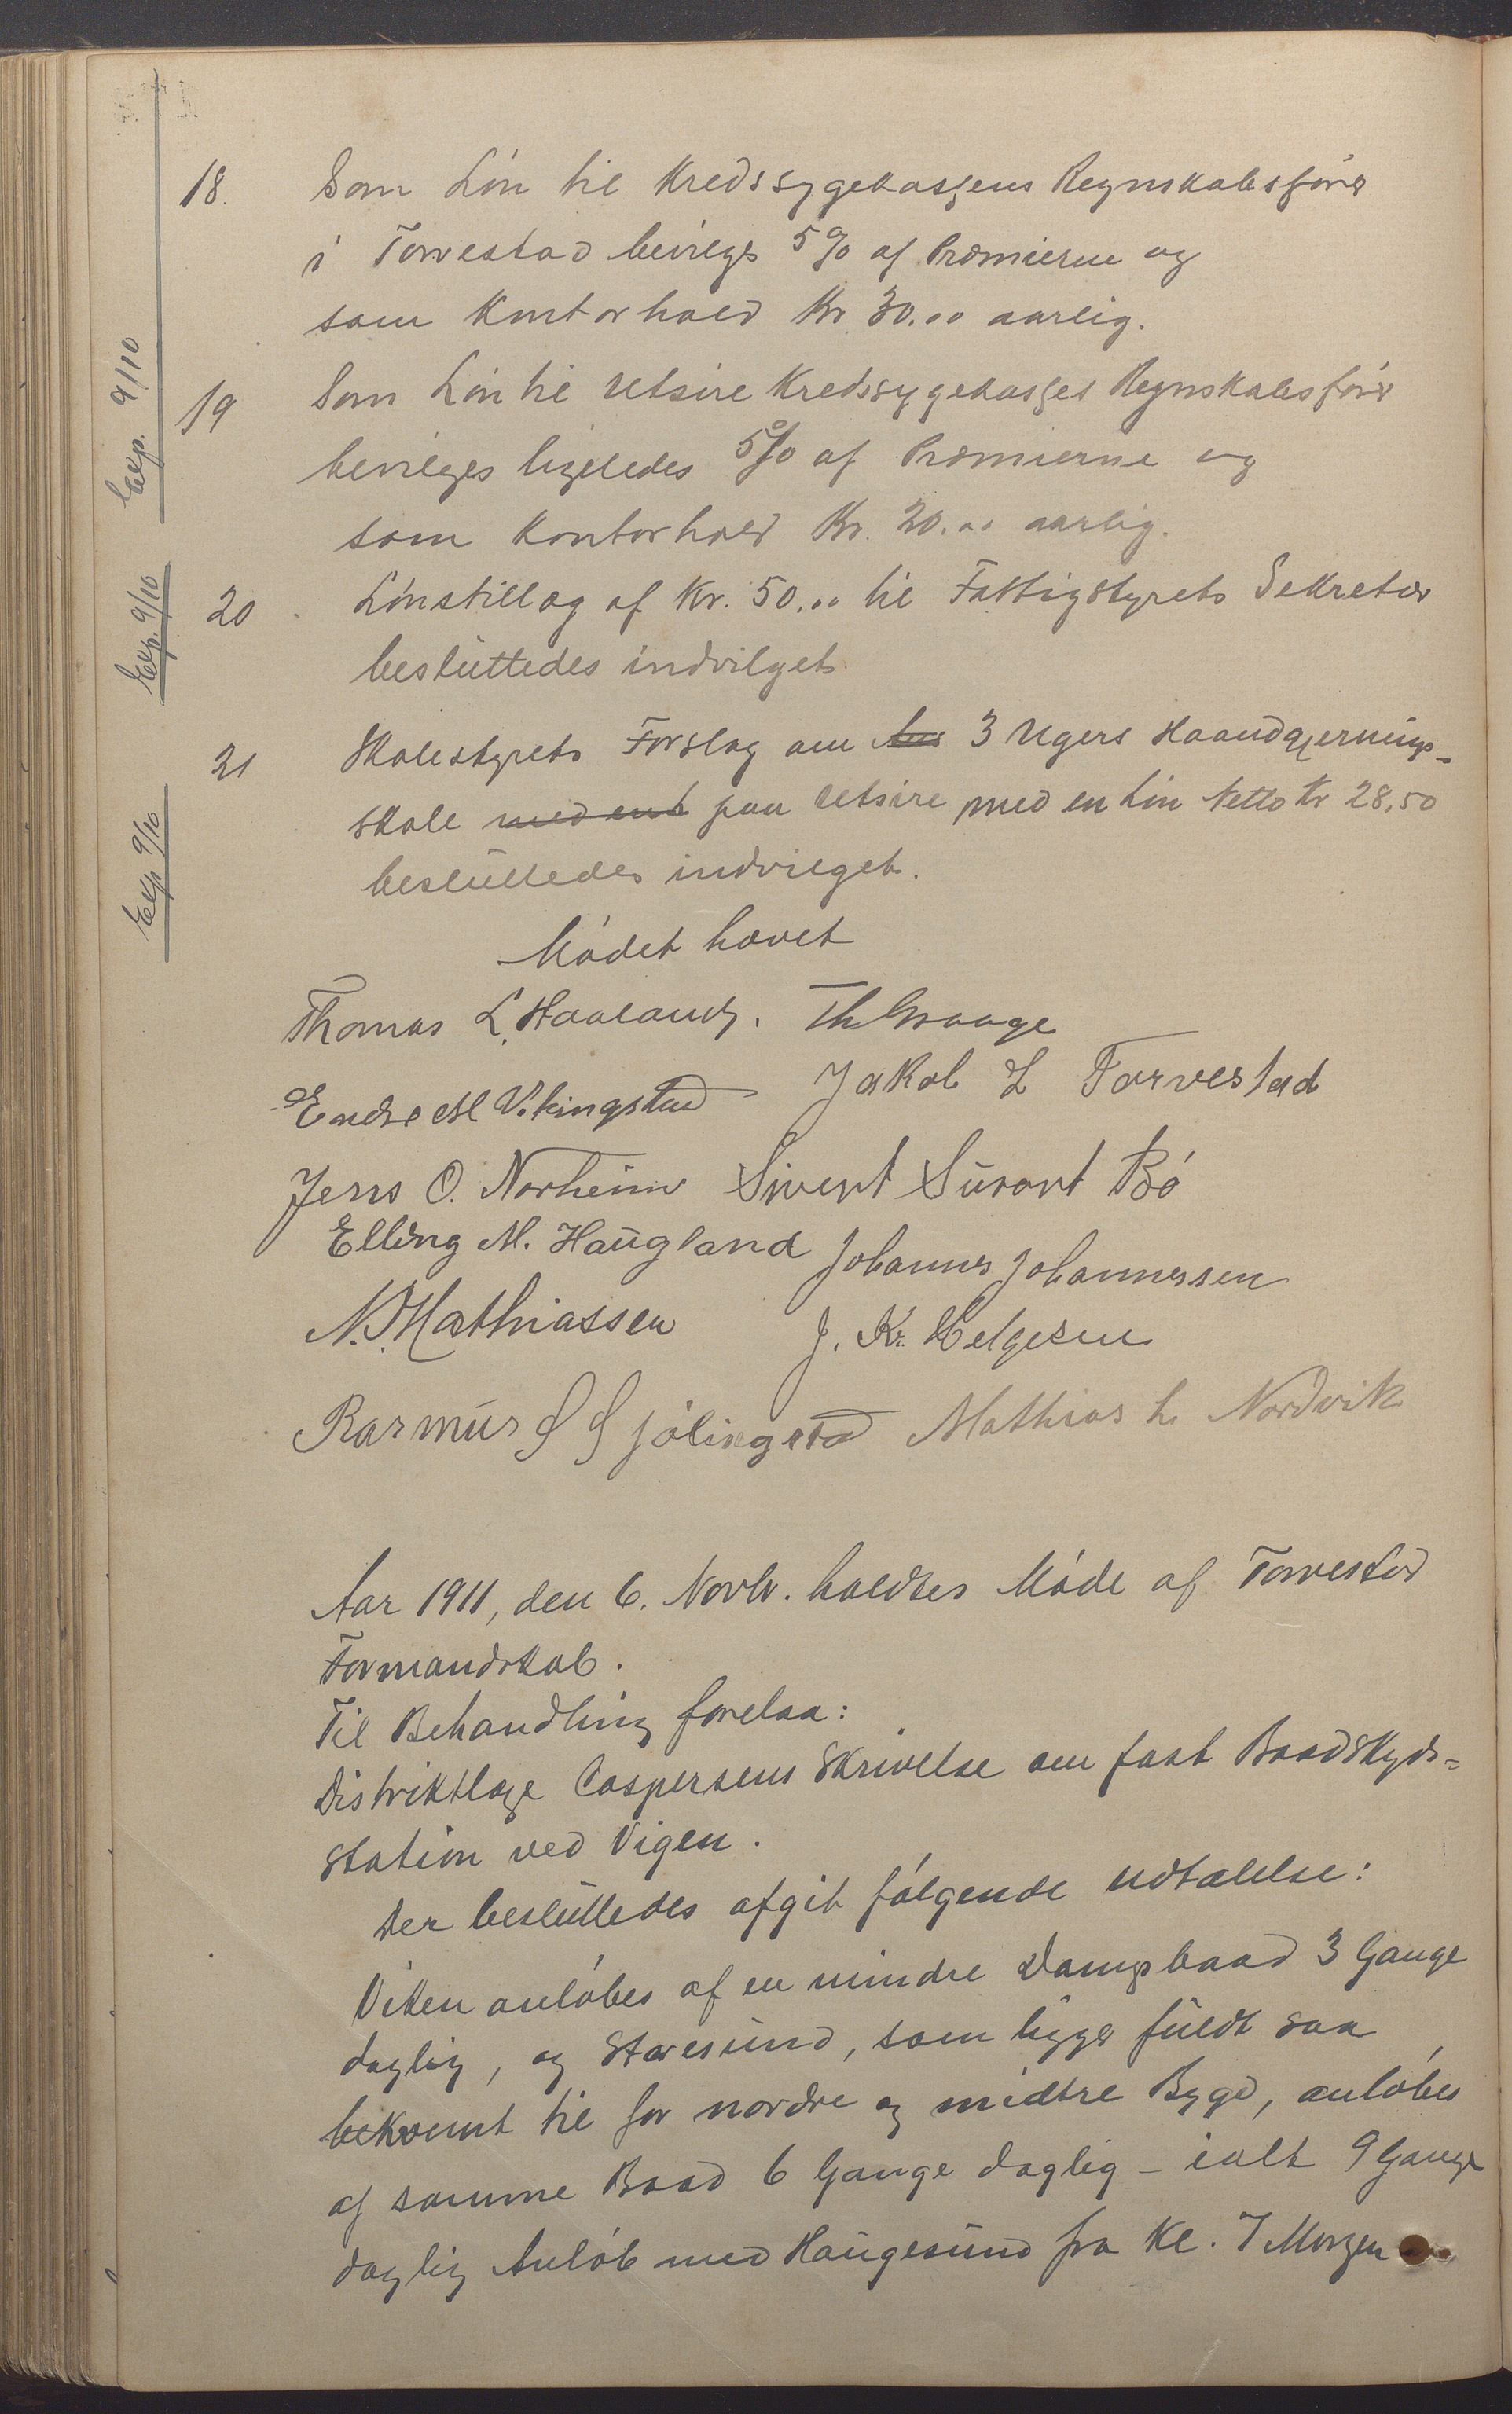 18. Som Løn til Kredssygekassens Regnskabsfører
i Torvestad bevilges 5% af Præmierne og
som Kontorhold Kr. 30.00 aarlig.
Exp. 9/10
19 Som Løn til Utsire Kredssygekasses Regnskabsfører
bevilges ligeledes 5% af Præmierne og
som Kontorhold Kr. 20.00 aarlig.
Exp. 9/10
20 Lønstillæg af Kr. 50.00 til Fattigstyrets Sekretær
besluttedes indvilget
21 Skolestyrets Forslag om 3 Ugers Haandgjernings-
Exp 9/10
skole med ent paa Utsire med en Løn Netto Kr 28,50
besluttedes indvilget.
Mødet hævet
Thomas L. Haaland. Th Waage
Endre M Vikingstad Jakob L Torvestad
Jens O. Norheim Sivert Sivert Bø
Elling M. Haugland Johannes Johannessen
N. Mathiassen J. Kr. Helgesen
Rasmus S Sjølingstad Mathias L. Nordvik
Aar 1911, den 6. Novbr. holdtes Møde af Torvestad
Formandskab.
Til Behandling forelaa:
Distriktlæge Caspersens Skrivelse om fast Baadskyds-
station ved Vigen.
Der besluttedes afgit følgende udtalelse:
Viken anløbes af en mindre Dampbaad 3 Gange
daglig, og Storesund, som ligger fuldt saa
bekvemt til for nordre og midtre Bygd, anløbes
af samme Baad 6 Gange daglig – ialt 9 Gange
daglig Anløb med Haugesund fra Kl. 7 Morgen